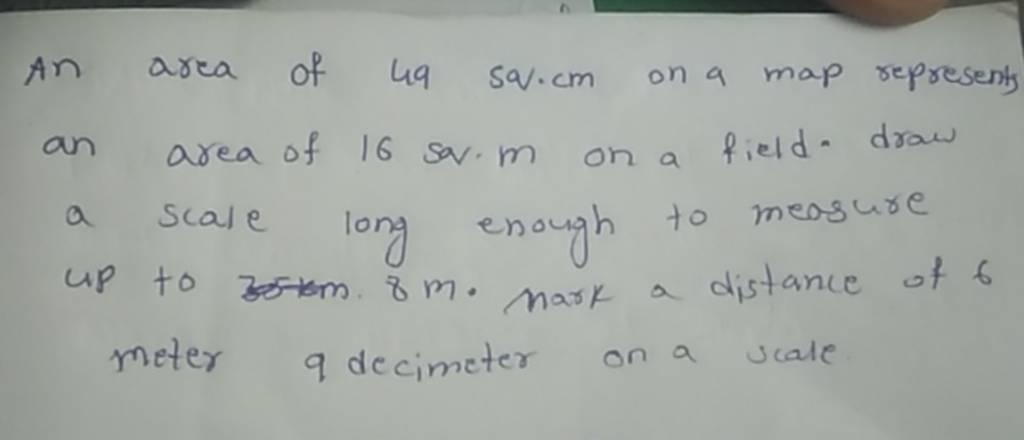 An area of 49 sq.cm on a map represents
an area of 16 sq.m on a field. draw
a scale long enough to measure
up to 8 m. Mark a distance of 6
meter 9 decimeter on a scale.